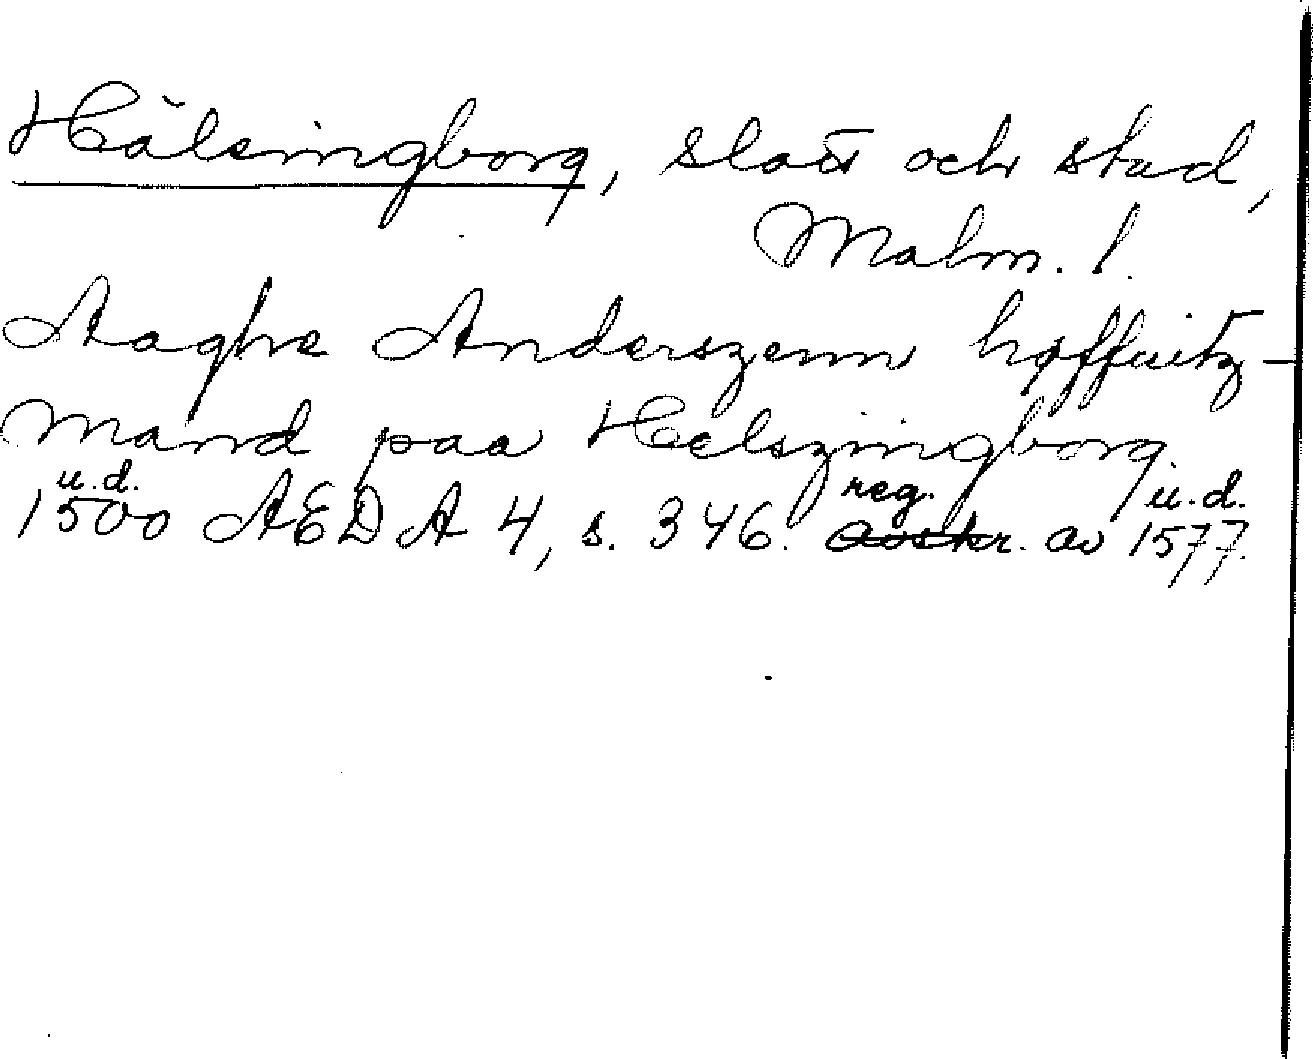 Hälsingborg, slott och stad,
Malm. l.
Aaghe Anderszenn høffuitz-
mand paa Helszingborg
u.d. reg. u.d.
1500 AEDA 4, s. 346. avskr. av 1577.